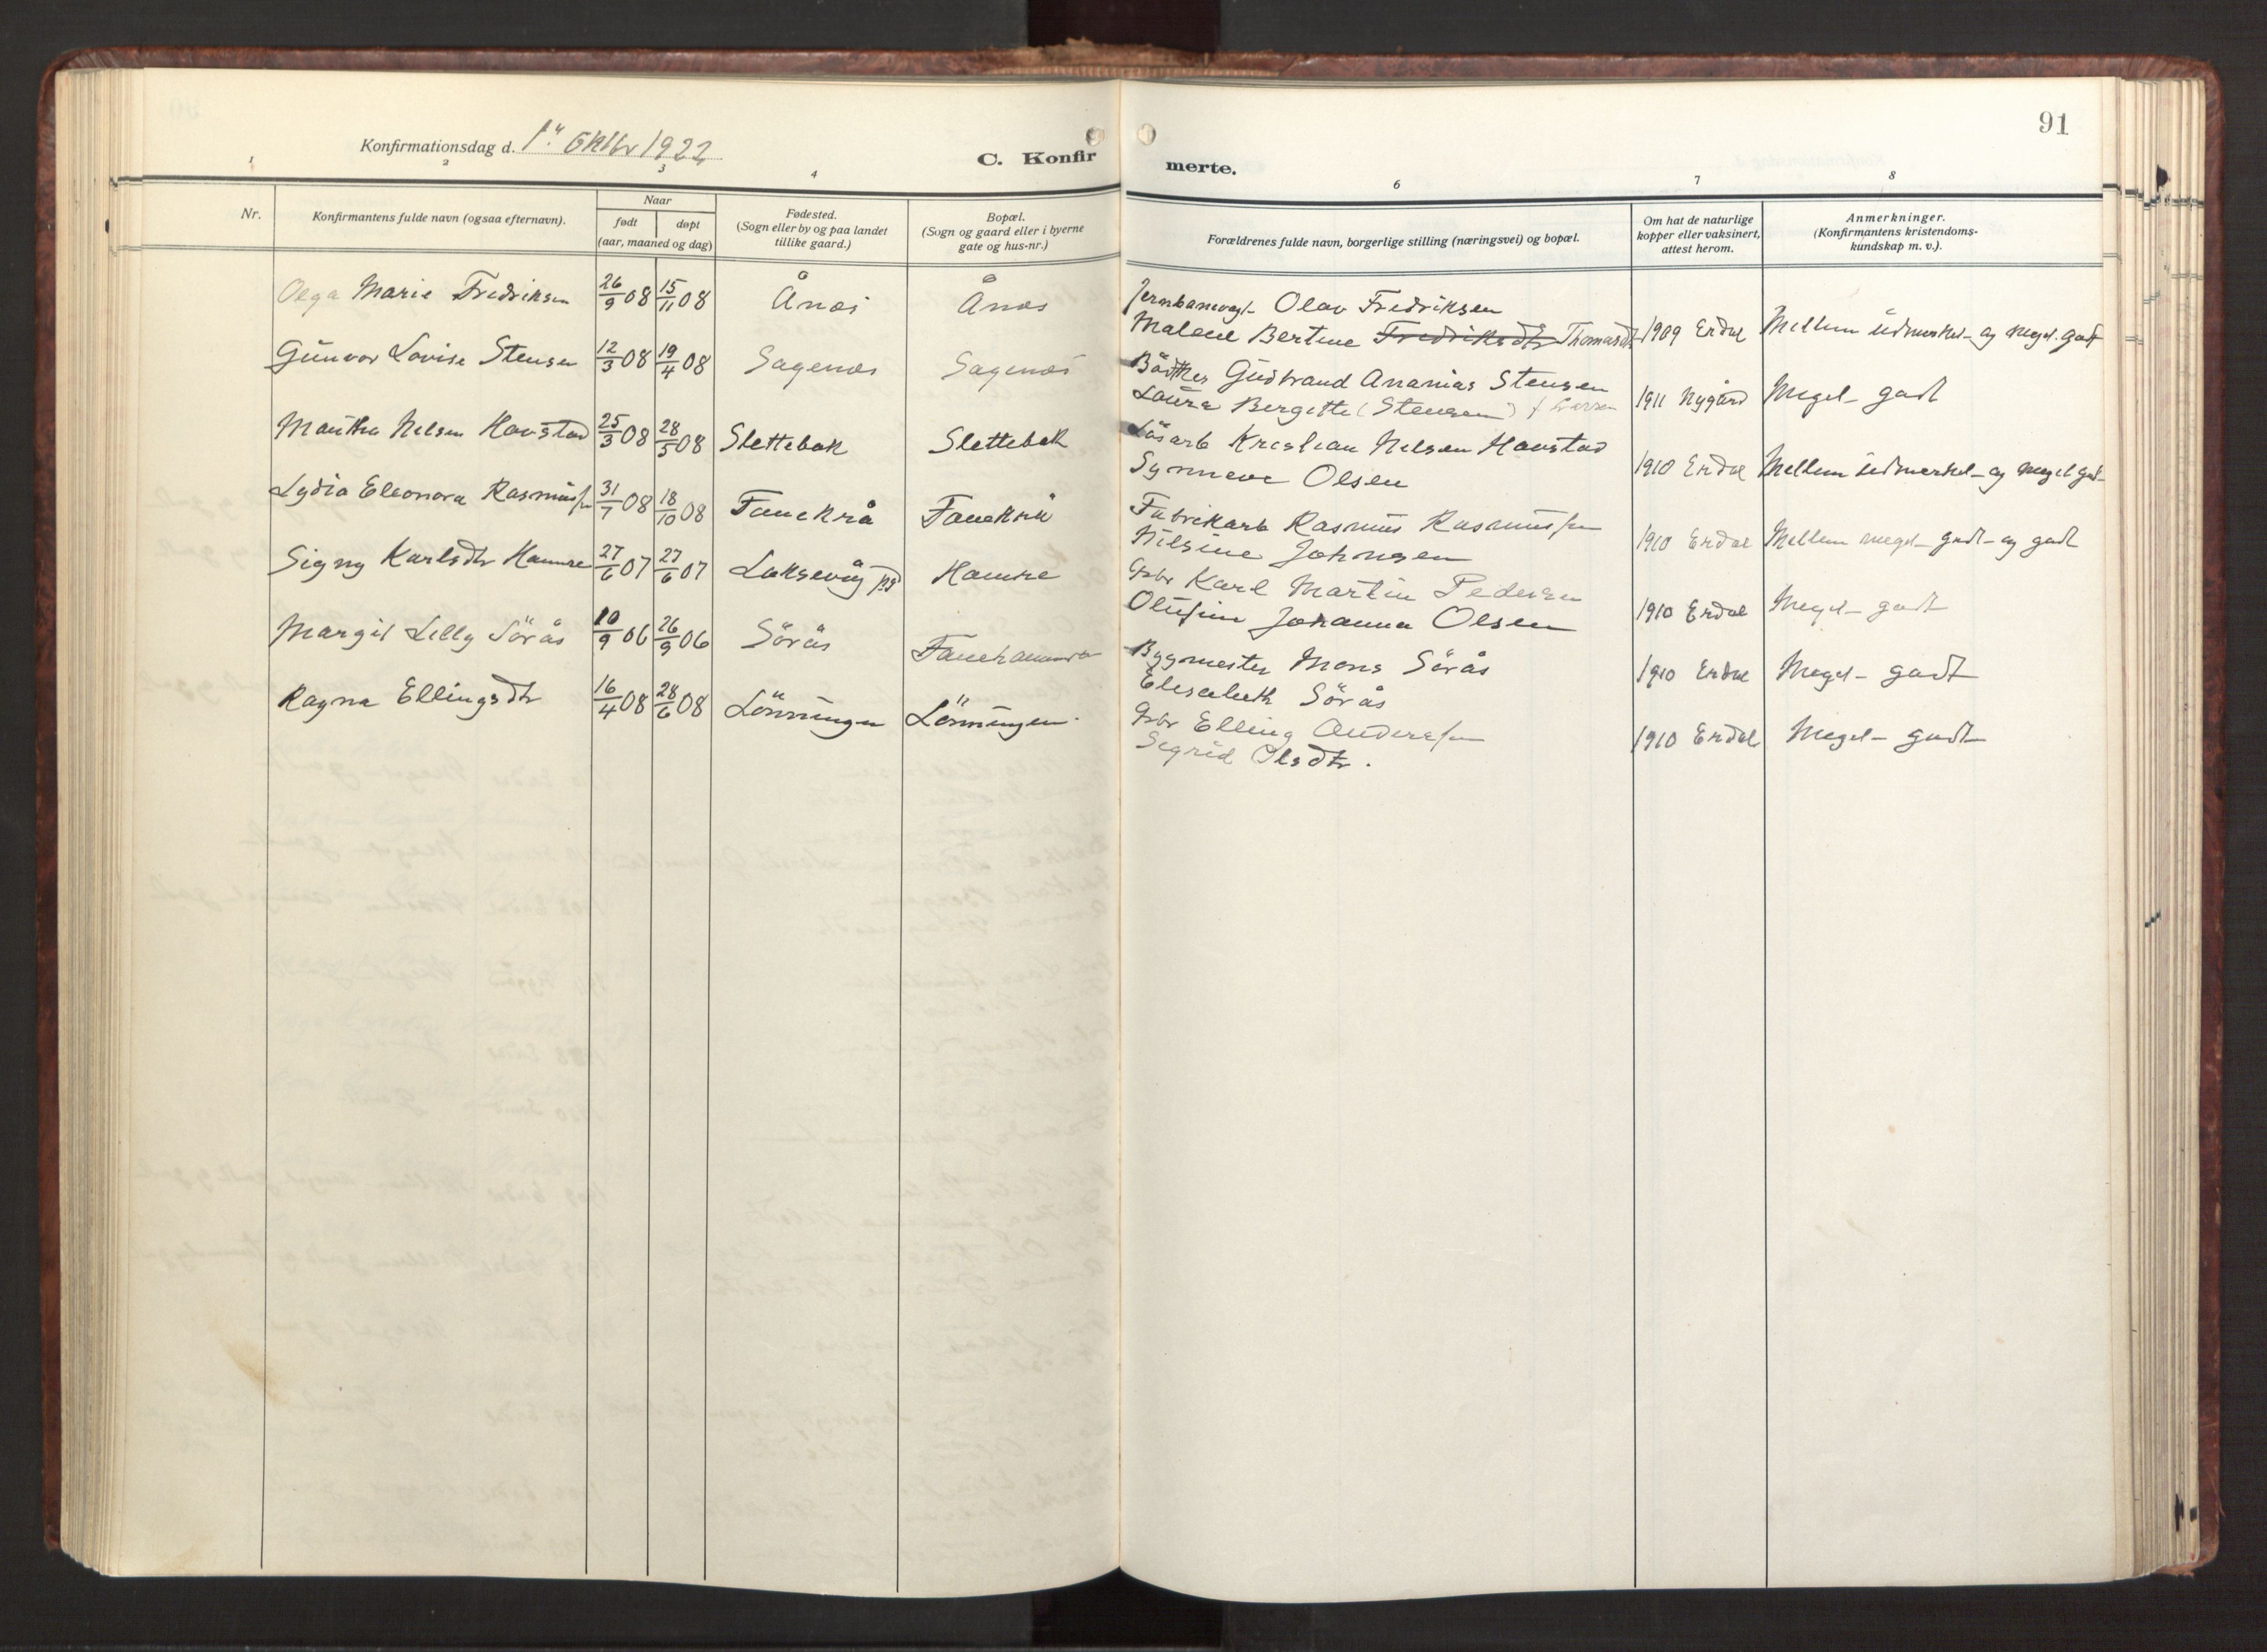 91
Konfirmationsdag d. 1" Oktbr 1922
C. Konfir
merte.
1 2 3 4 6 7 8
Nr.
Konfirmantens fulde navn (ogsaa efternavn).
Naar
født døpt
(aar, maaned og dag)
Fødested.
(Sogn eller by og paa landet
tillike gaard.)
Bopæl.
(Sogn og gaard eller i byerne
gate og hus-nr.)
Forældrenes fulde navn, borgerlige stilling (næringsvei) og bopæl.
Om hat de naturlige
kopper eller vaksinert,
attest herom.
Anmerkninger.
(Konfirmantens kristendoms-
kundskap m. v.).
Olga Marie Fredriksen 26/9 08 15/11 08 Ånæs Ånæs
Olav Fredriksen
Malene Bertine Fredriksdtr Thomasdtr 1909 Erdal Mellem üdmerket- og meget godt
Günvor Lovise Stensen 12/3 08 19/4 08 Sagenæs Sagenæs
Gudbrand Ananias Stensen
Laüra Bergitte (Stensen) f. 1911 Nygård Meget- godt
Martha Nelsen Havstad 25/3 08 28/5 08 Slettebak Slettebak
Lösarb Kristian Nelsen Havstad
Synneve Olsen 1910 Erdal Mellem üdmerket- og meget godt
Lydia Eleonora Rasmüssen 31/7 08 18/10 08 Tanekrå Tanekrå
Fabrikarb Rasmüs Rasmüssen
Nilsine Johnsen 1910 Erdal Mellem meget- godt- og godt
Signy Karlsdtr Hamre 27/6 07 27/6 07 Laksevåg psd Hamre
Gbr Karl Martin Pedersen
Johanna Olsen 1910 Erdal Meget- godt
Margit Lilly Sörås 10/9 06 26/9 06 Sörås Fanehammer
Bygmester Mons Sörås
Elisabeth Sörås 1910 Erdal Meget- godt
Ragna Ellingsdtr 16/4 08 28/6 08 Lönningen Lönningen.
Gbr Elling Anderssen
Sigrid Olsdtr. 1910 Erdal Meget- godt